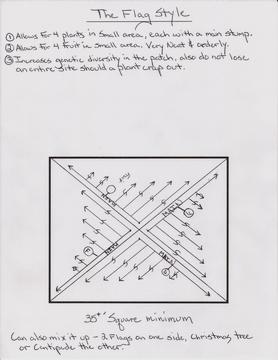 The Flag Style
① Allows For 4 plants in Small area, each with a main stump.
② Allows For 4 Fruit in Small area. Very Neat & orderly.
③ Increases genetic diversity in the patch, also do not lose
an entire site should a plant crap out.
35'+ Square minimum
Can also mix it up - 2 Flags on one side, Christmas tree
or Centipede the other.